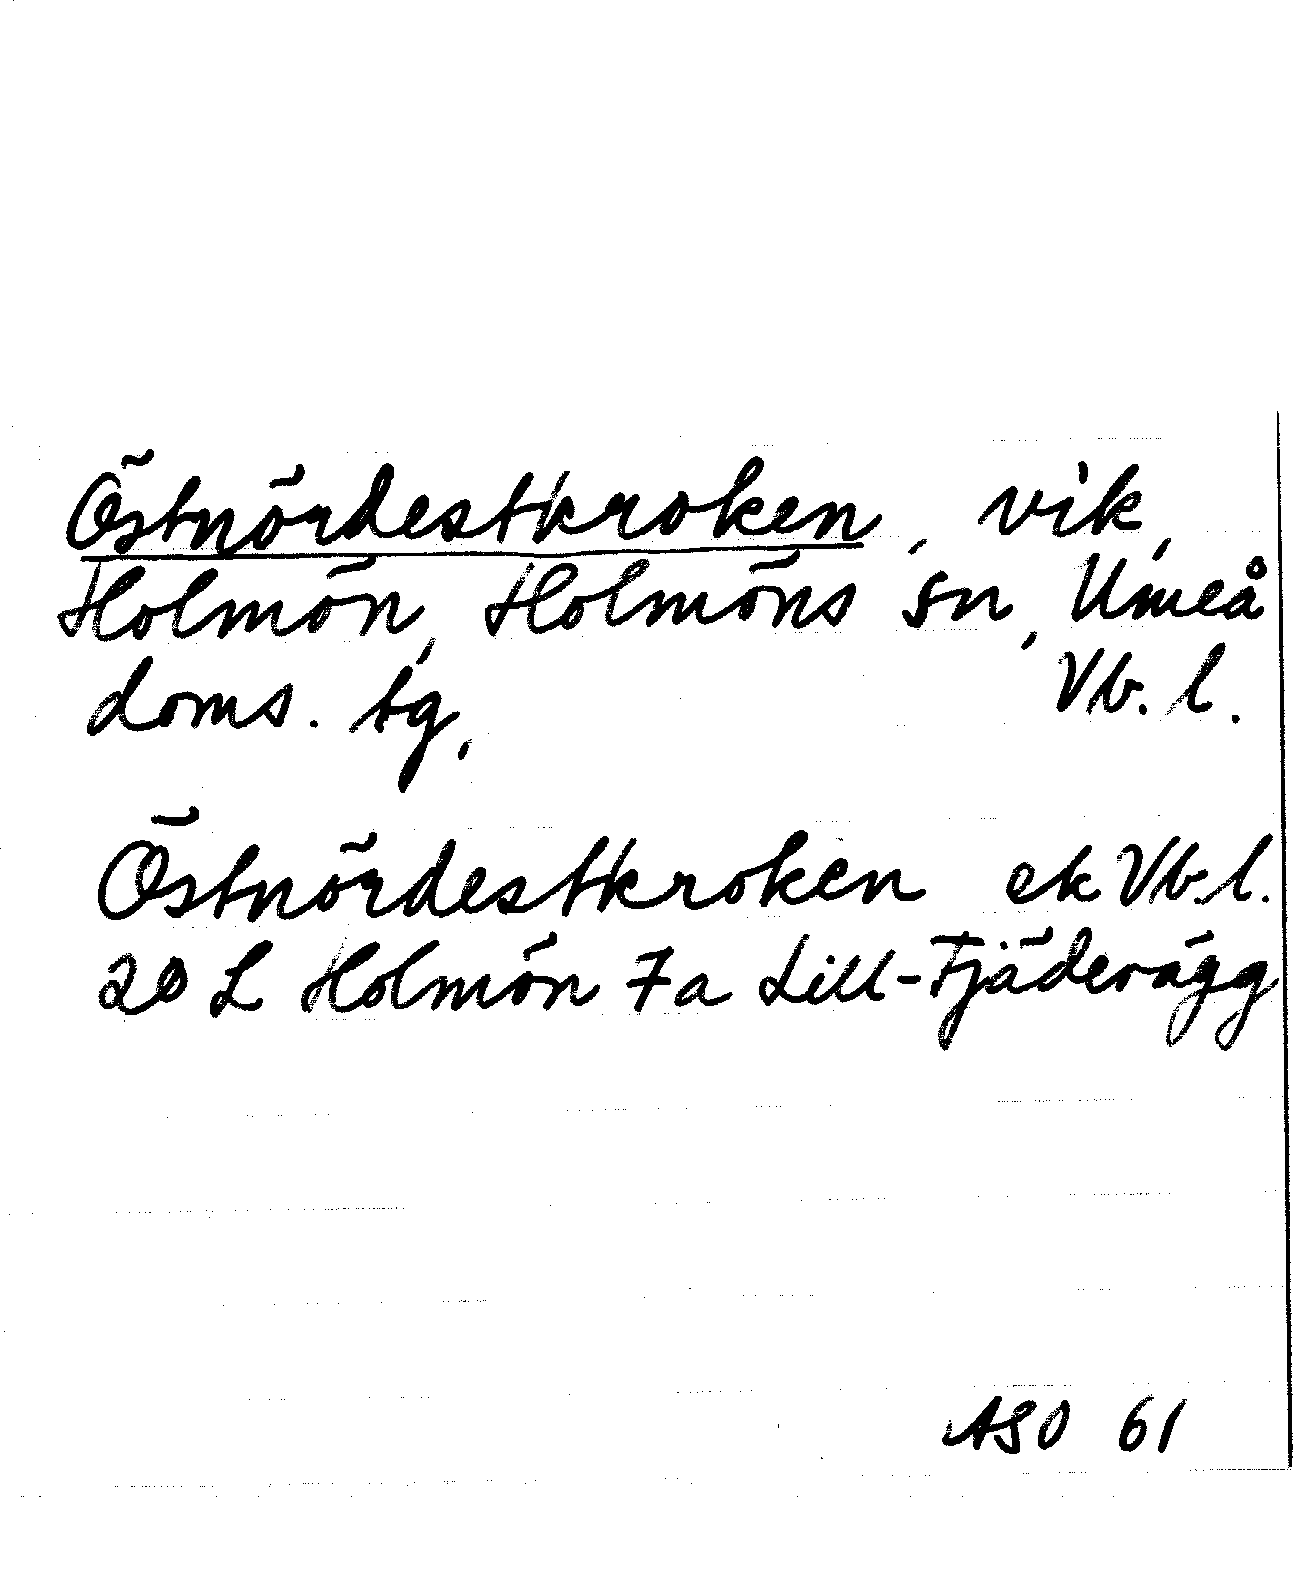 Östnördestkroken, vik,
Holmön, Holmöns sn, Umeå
doms. tg, Vb. l.
Östnördestkroken ek Vb.l.
20 L Holmön 7a Lill-Fjäderägg
ASO 61